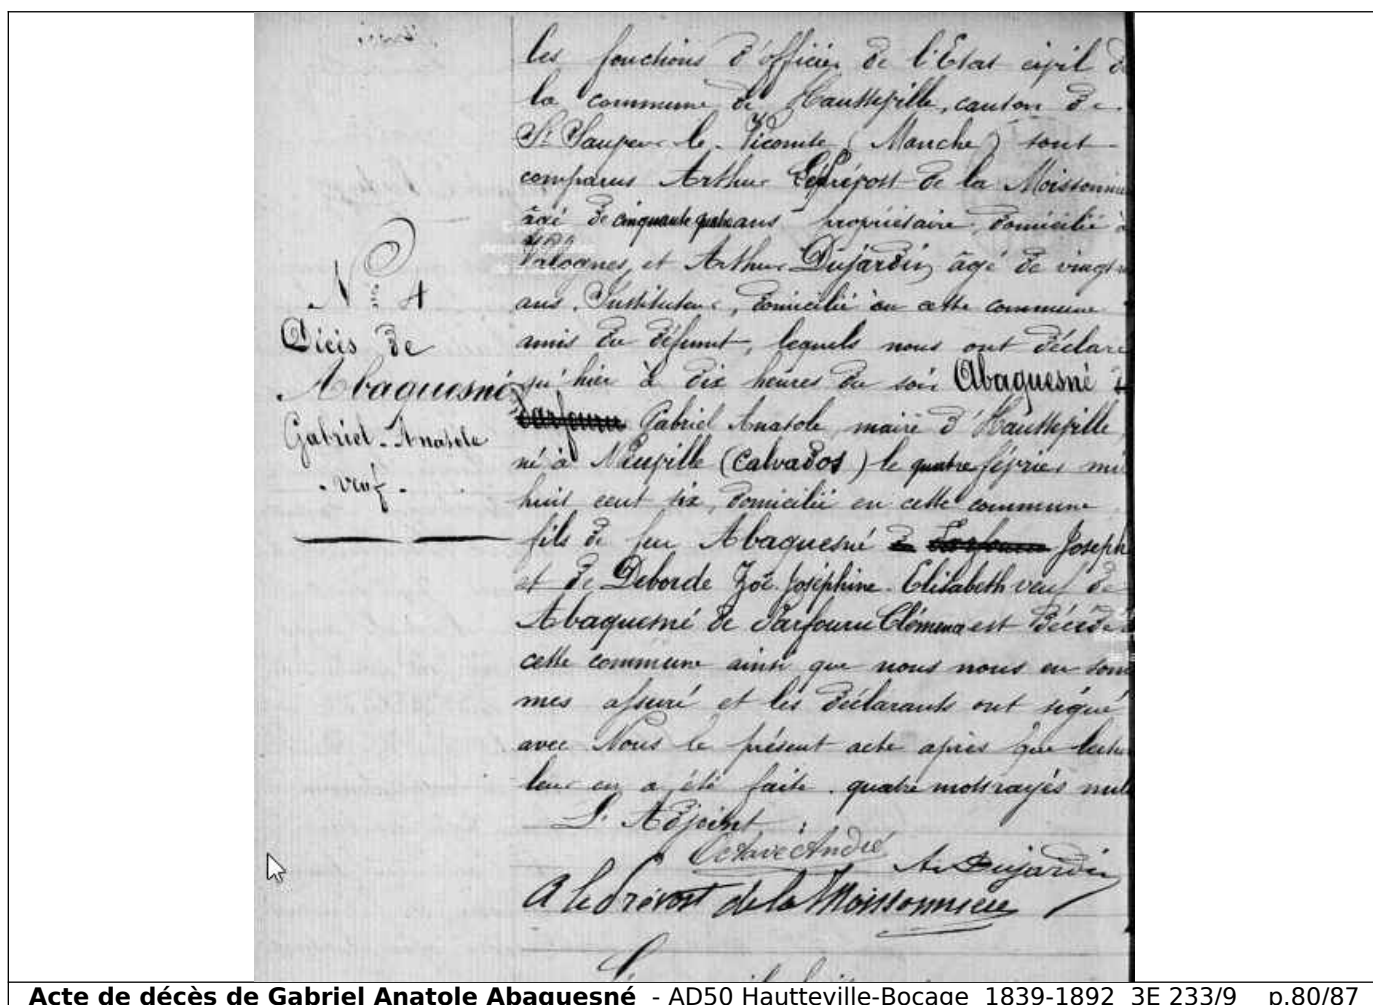 les fonctions d'officier de l'Etat civil de
la commune de Hautteville, canton de
St Sauveur le Vicomte (Manche) sont
comparus Arthur Leprévost de la Moissonnière
âgé de cinquante quatre ans propriétaire, domicilié à
Valognes, et Arthur Dujardin, âgé de vingt
ans, Instituteur, domicilié en cette commune
amis du défunt, lequels nous ont déclaré
qu'hier à dix heures du soir Abaquesné de
Parfouru Gabriel Anatole, maire d'Hautteville,
né à Neuville (Calvados) le quatre février mil
huit cent six, domicilié en cette commune
fils de feu Abaquesné de Parfouru Joseph
et de Deborde Zoë Joséphine Elisabeth veuf de
Abaquesné de Parfouru Clémena est décédé
cette commune ainsi que nous nous en som
mes assuré et les déclarants ont signé
avec Nous le présent acte après que lecture
leur en a été faite. quatre mots rayés nuls
L'Adjoint :
Octave André
A. Dujardin
A le Prévost de la Moissonnière
N° 4
Décès de
Abaquesné
Gabriel-Anatole
- veuf -
Acte de décès de Gabriel Anatole Abaquesné - AD50 Hautteville-Bocage 1839-1892 3E 233/9 p.80/87